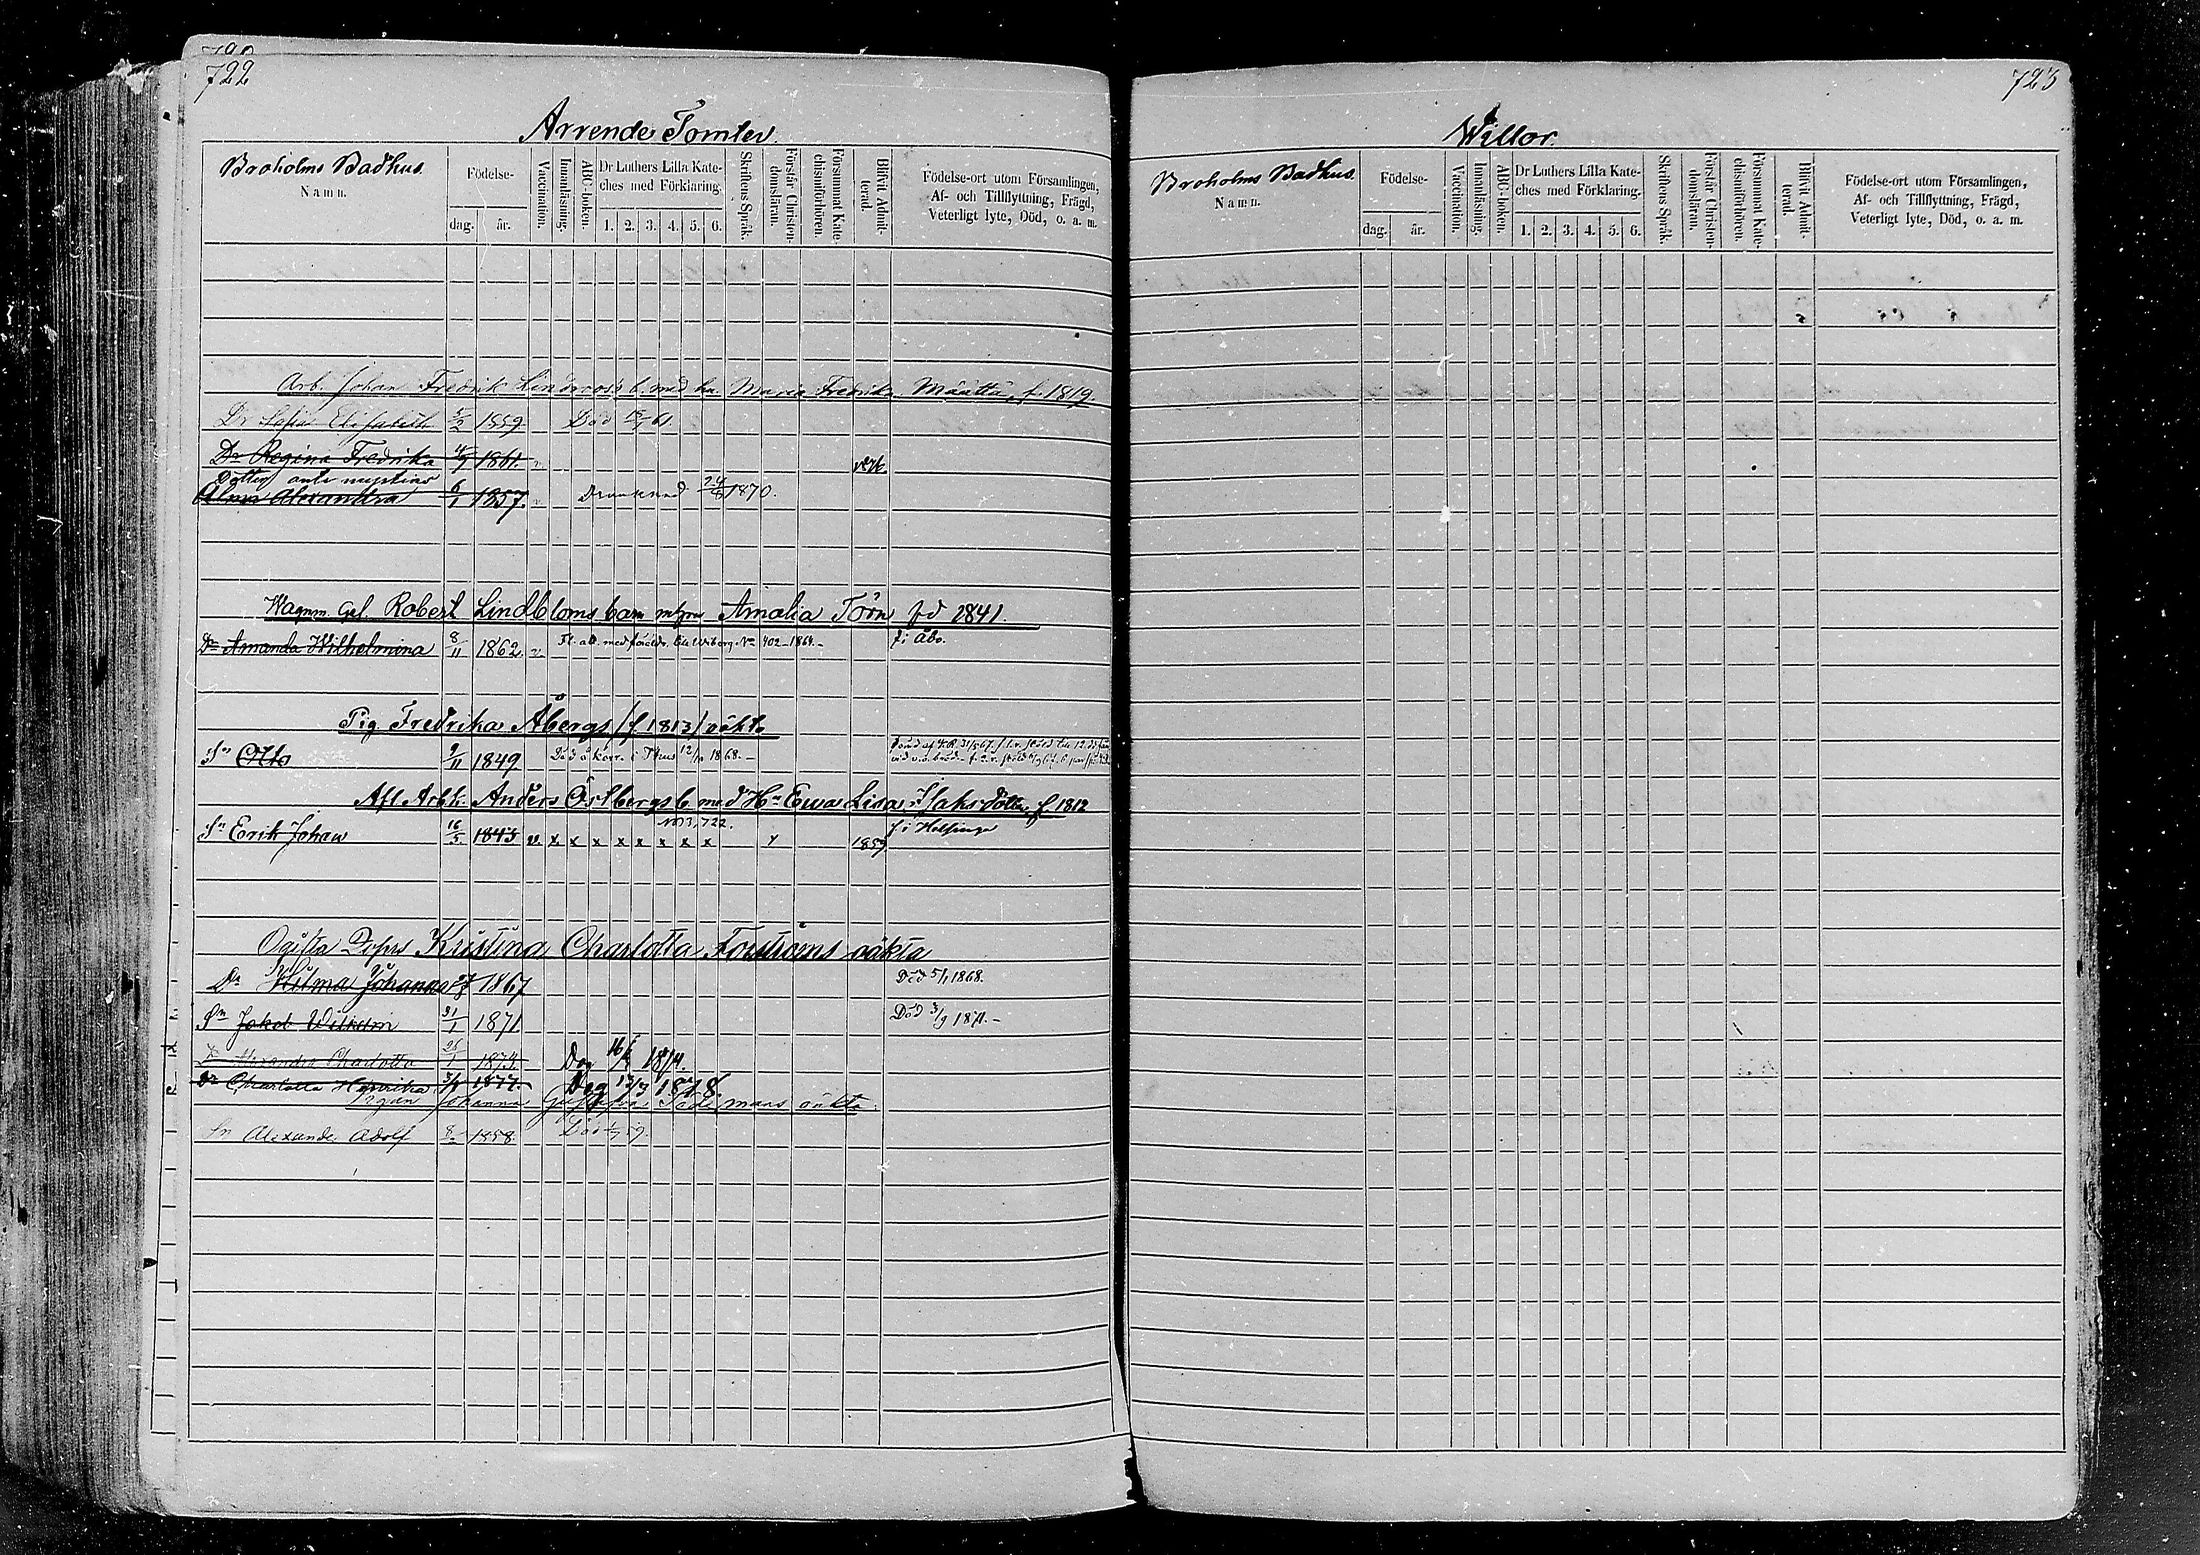 722
Arrende Tomter.
Broholms Badhus.
Namn.
Födelse-
dag. år.
Vaccination.
Innanläsning.
ABC-boken.
Dr Luthers Lilla Kate-
ches med Förklaring.
1. 2. 3. 4. 5. 6.
Skriftens Språk.
Förstår Christen-
domsläran.
Försummat Kate-
chismiförhören.
Blifvit Admit-
terad.
Födelse-ort utom Församlingen,
Af- och Tillflyttning, Frägd,
Veterligt lyte, Död, o. a. m.
Arb. Johan Fredrik Lindroos b. med hu. Maria Fredrika Määttä, f. 1819.
Dr Sofia Elisabeth 5/2 1859. Död 15/1 61.
Dr Regina Fredrika 4/9 1861. v.
Dotter ante nuptias
Alma Alexandra 6/1 1857. v. Drunknad 24/8 1870.
Wagnm. Gel. Robert Lindbloms barn Amalia Törn fd 1841.
Dr Amanda Wilhelmina 8/11 1862. v. Fl. all. med föräldr. till Wiborg No 402-1864.- f. i Åbo.
Pig. Fredrika Åbergs (f. 1813) oäkta
Sn Otto 9/11 1849. Död å korr. i Thus 12/10 1868.-
Afl. Arbk. Anders Örlbergs b. med Hu Ewa Lisa Isaksdotter, f. 1812
No 3, 722.
Sn Erik Johan 16/5 1843 v. x x x x x x x x x 1859 f. i Helsinge
Ogifta Kristina Charlotta Forströms oäkta
Dr Hilma Johanna 1867 Död 5/1 1868.
Sn Jakob Wilhelm 31/1 1871 Död 3/9 1871.-
Dr Alexandra Charlotta 26/1 1873. Dog 16/ 1874.
Dr Charlotta Henrika 3/1 1877. Dog 13/7 1878.
Pigan Johanna Gustafva Södermans oäkta.
Sn Alexander Adolf 8/2 1858. Död 59.
723
Willor.
Broholms Badhus.
Namn.
Födelse-
dag. år.
Vaccination.
Innanläsning.
ABC-boken.
Dr Luthers Lilla Kate-
ches med Förklaring.
1. 2. 3. 4. 5. 6.
Skriftens Språk.
Förstår Christen-
domsläran.
Försummat Kate-
chismiförhören.
Blifvit Admit-
terad.
Födelse-ort utom Församlingen,
Af- och Tillflyttning, Frägd,
Veterligt lyte, Död, o. a. m.